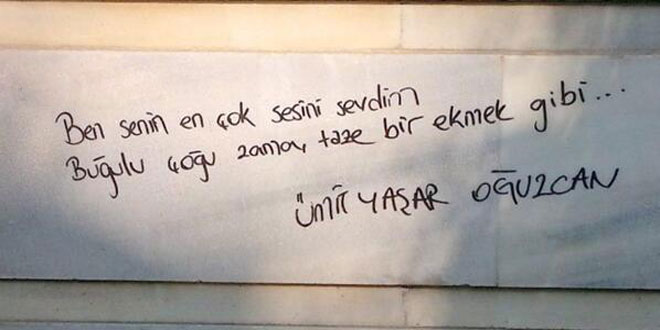 Ben senin en çok sesini sevdim
Buğulu çoğu zaman, taze bir ekmek gibi...
ÜMİT YAŞAR OĞUZCAN